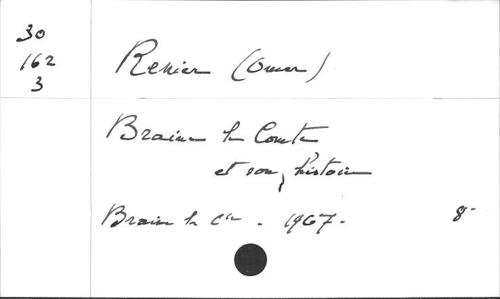 30
162
3
Renier (Omer)
Braine le Comte
et son histoire
Braine le Cte - 1967 -
8-